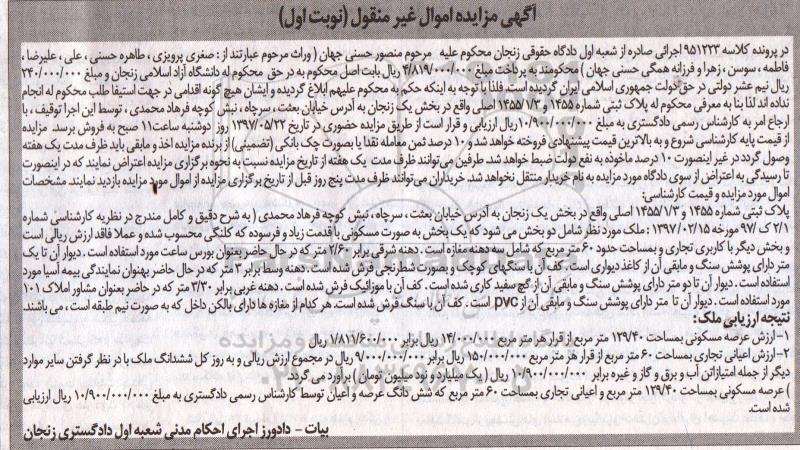 آگهی مزایده اموال غیر منقول (نوبت اول)
در پرونده کلاسه ۹۵۱۲۲۳ اجرائی صادره از شعبه اول دادگاه حقوقی زنجان محکوم علیه مرحوم منصور حسنی جهان ( وراث مرحوم عبارتند از : صغری پرویزی ، طاهره حسنی ، علی ، علیرضا ،
فاطمه ، سوسن ، زهرا و فرزانه همگی حسنی جهان ) محکومند به پرداخت مبلغ ۴/۸۱۹/۰۰۰/۰۰۰ ریال بابت اصل محکوم به در حق محکوم له دانشگاه آزاد اسلامی زنجان و مبلغ ۲۴۰/۰۰۰/۰۰۰
ریال نیم عشر دولتی در حق دولت جمهوری اسلامی ایران گردیده است. فلذا با توجه به اینکه حکم به محکوم علیهم ابلاغ گردیده و ایشان هیچ گونه اقدامی در جهت استیفا طلب محکوم له انجام
نداده اند لذا بنا به معرفی محکوم له پلاک ثبتی شماره ۱۴۵۵ و ۱۴۵۵/۱/۳ اصلی واقع در بخش یک زنجان به آدرس خیابان بعثت ، سرچاه ، نبش کوچه فرهاد محمدی ، توسط این اجرا توقیف ، با
ارجاع امر به کارشناس رسمی دادگستری به مبلغ ۱۰/۹۰۰/۰۰۰/۰۰۰ ریال ارزیابی و قرار است از طریق مزایده حضوری در تاریخ ۱۳۹۷/۰۵/۲۲ روز دوشنبه ساعت ۱۱ صبح به فروش برسد. مزایده
از قیمت پایه کارشناسی شروع و به بالاترین قیمت پیشنهادی فروخته خواهد شد و ۱۰ درصد ثمن معامله نقدا یا بصورت چک بانکی (تضمینی) از برنده مزایده اخذ و مابقی باید ظرف مدت یک هفته
وصول گردد در غیر اینصورت ۱۰ درصد ماخوذه به نفع دولت ضبط خواهد شد. طرفین می‌توانند ظرف مدت یک هفته از تاریخ مزایده نسبت به نحوه برگزاری مزایده اعتراض نمایند که در اینصورت
تا رسیدگی به اعتراض از سوی دادگاه مورد مزایده به نام خریدار منتقل نخواهد شد. خریداران می‌توانند ظرف مدت پنج روز قبل از تاریخ برگزاری مزایده از اموال مورد مزایده بازدید نمایند. مشخصات
اموال مورد مزایده و قیمت کارشناسی:
پلاک ثبتی شماره ۱۴۵۵ و ۱۴۵۵/۱/۳ اصلی واقع در بخش یک زنجان به آدرس خیابان بعثت ، سرچاه ، نبش کوچه فرهاد محمدی ( به شرح دقیق و کامل مندرج در نظریه کارشناسی شماره
۲/۱ ک/۹۷ مورخه ۱۳۹۷/۰۲/۱۵ : ملک مورد نظر شامل دو بخش می شود که یک بخش به صورت مسکونی با قدمت زیاد و فرسوده که کلنگی محسوب شده و عملا فاقد ارزش ریالی است
و بخش دیگر با کاربری تجاری و بمساحت حدود ۶۰ متر مربع که شامل سه دهنه مغازه است . دهنه شرقی برابر ۲/۶۰ متر که در حال حاضر بعنوان بورس ساعت مورد استفاده است . دیوار آن تا یک
متر دارای پوشش سنگ و مابقی آن از کاغذ دیواری است . کف آن با سنگهای کوچک و بصورت شطرنجی فرش شده است . دهنه وسط برابر ۳ متر که در حال حاضر بهنوان نمایندگی بیمه آسیا مورد
استفاده است . دیوار آن تا دو متر دارای پوشش سنگ و مابقی آن از گچ سفید کاری شده است . کف آن با موزائیک فرش شده است . دهنه غربی برابر ۳/۳۰ متر که در حاضر بعنوان مشاور املاک ۱۰۱
مورد استفاده است . دیوار آن تا متر دارای پوشش سنگ و مابقی آن از pvc است . کف آن با سنگ فرش شده است . هر کدام از مغازه ها دارای بالکن داخل که به صورت نیم طبقه است ، می باشند
نتیجه ارزیابی ملک:
۱- ارزش عرصه مسکونی بمساحت ۱۲۹/۴۰ متر مربع از قرار هر متر مربع ۱۴/۰۰۰/۰۰۰ ریال برابر ۱/۸۱۱/۶۰۰/۰۰۰ ریال
۲- ارزش اعیانی تجاری بمساحت ۶۰ متر مربع از قرار هر متر مربع ۱۵۰/۰۰۰/۰۰۰ ریال برابر ۹/۰۰۰/۰۰۰/۰۰۰ ریال در مجموع ارزش ریالی و به روز کل ششدانگ ملک با در نظر گرفتن سایر موارد
دیگر از جمله امتیازاتی آب و برق و گاز و غیره برابر ۱۰/۹۰۰/۰۰۰/۰۰۰ ریال ( یک میلیارد و نود میلیون تومان ) برآورد می گردد.
) عرصه مسکونی بمساحت ۱۲۹/۴۰ متر مربع و اعیانی تجاری بمساحت ۶۰ متر مربع که شش دانگ عرصه و اعیان توسط کارشناس رسمی دادگستری به مبلغ ۱۰/۹۰۰/۰۰۰/۰۰۰ ریال ارزیابی
شده است.
بیات - دادورز اجرای احکام مدنی شعبه اول دادگستری زنجان